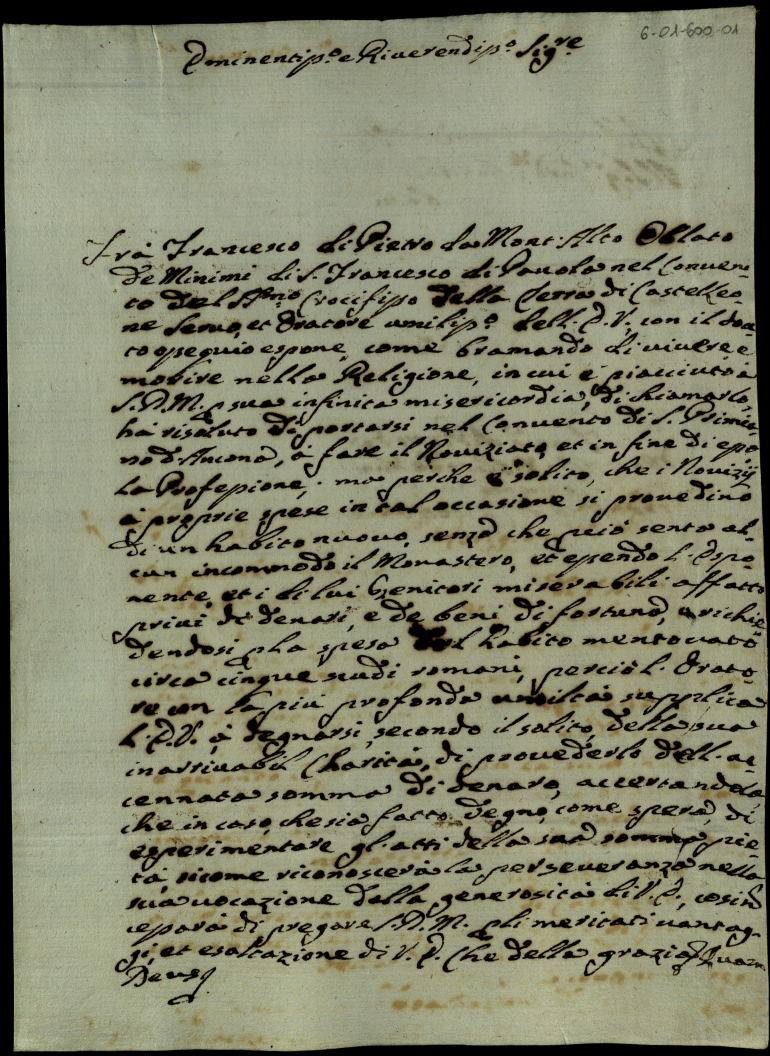 6-01-600-01
Eminentiss.o e Riverendiss.o Sig.re
Frà Francesco di Pietro da Mont'Alto Oblato
de Minimi di S. Francesco di Pauola nel Conuen-
to del SS.mo Crocifisso della Serra di Castelleo-
ne Seruo, et Oratore umiliss.o dell'E.V. con il dou-
to ossequio espone, come bramando di uiuere, e
morire nella Religione, in cui è piaciuto à
S.D.M. p sua infinita misericordia, di chiamarlo,
hà risoluto di portarsi nel Conuento di S. Primia-
no d'Ancona, à fare il Nouiziato, et in fine di esso
la Professione; ma perche è solito, che i Nouizij
à proprie spese in tal occasione si prouedino
di un habito nuouo, senza che p ciò senta al-
cun incommodo il Monastero, et essendo l'Espo-
nente, et i di lui Genitori miserabili affatto
priui di denari, e de beni di fortuna, e richie-
dendosi p la spesa del habito mentouato
circa cinque scudi romani, perciò l'Orato-
re con la più profonda umiltà supplica
l'E.V. à degnarsi, secondo il solito, della sua
inarriuabil Charità, di prouederlo dell'ac-
cennata somma di denaro, accertandola,
che in caso, che sia fatto degno, come spera, di
esperimentare gl'atti della sua somma pie-
tà, sicome riconoscerà la perseueranza nella
sua uocazione dalla generosità di V.E., cosi n
cesserà di pregare S.D.M. p li meritati uantag-
gi, et esaltazione di V.E. Che della grazia Quam
Deus